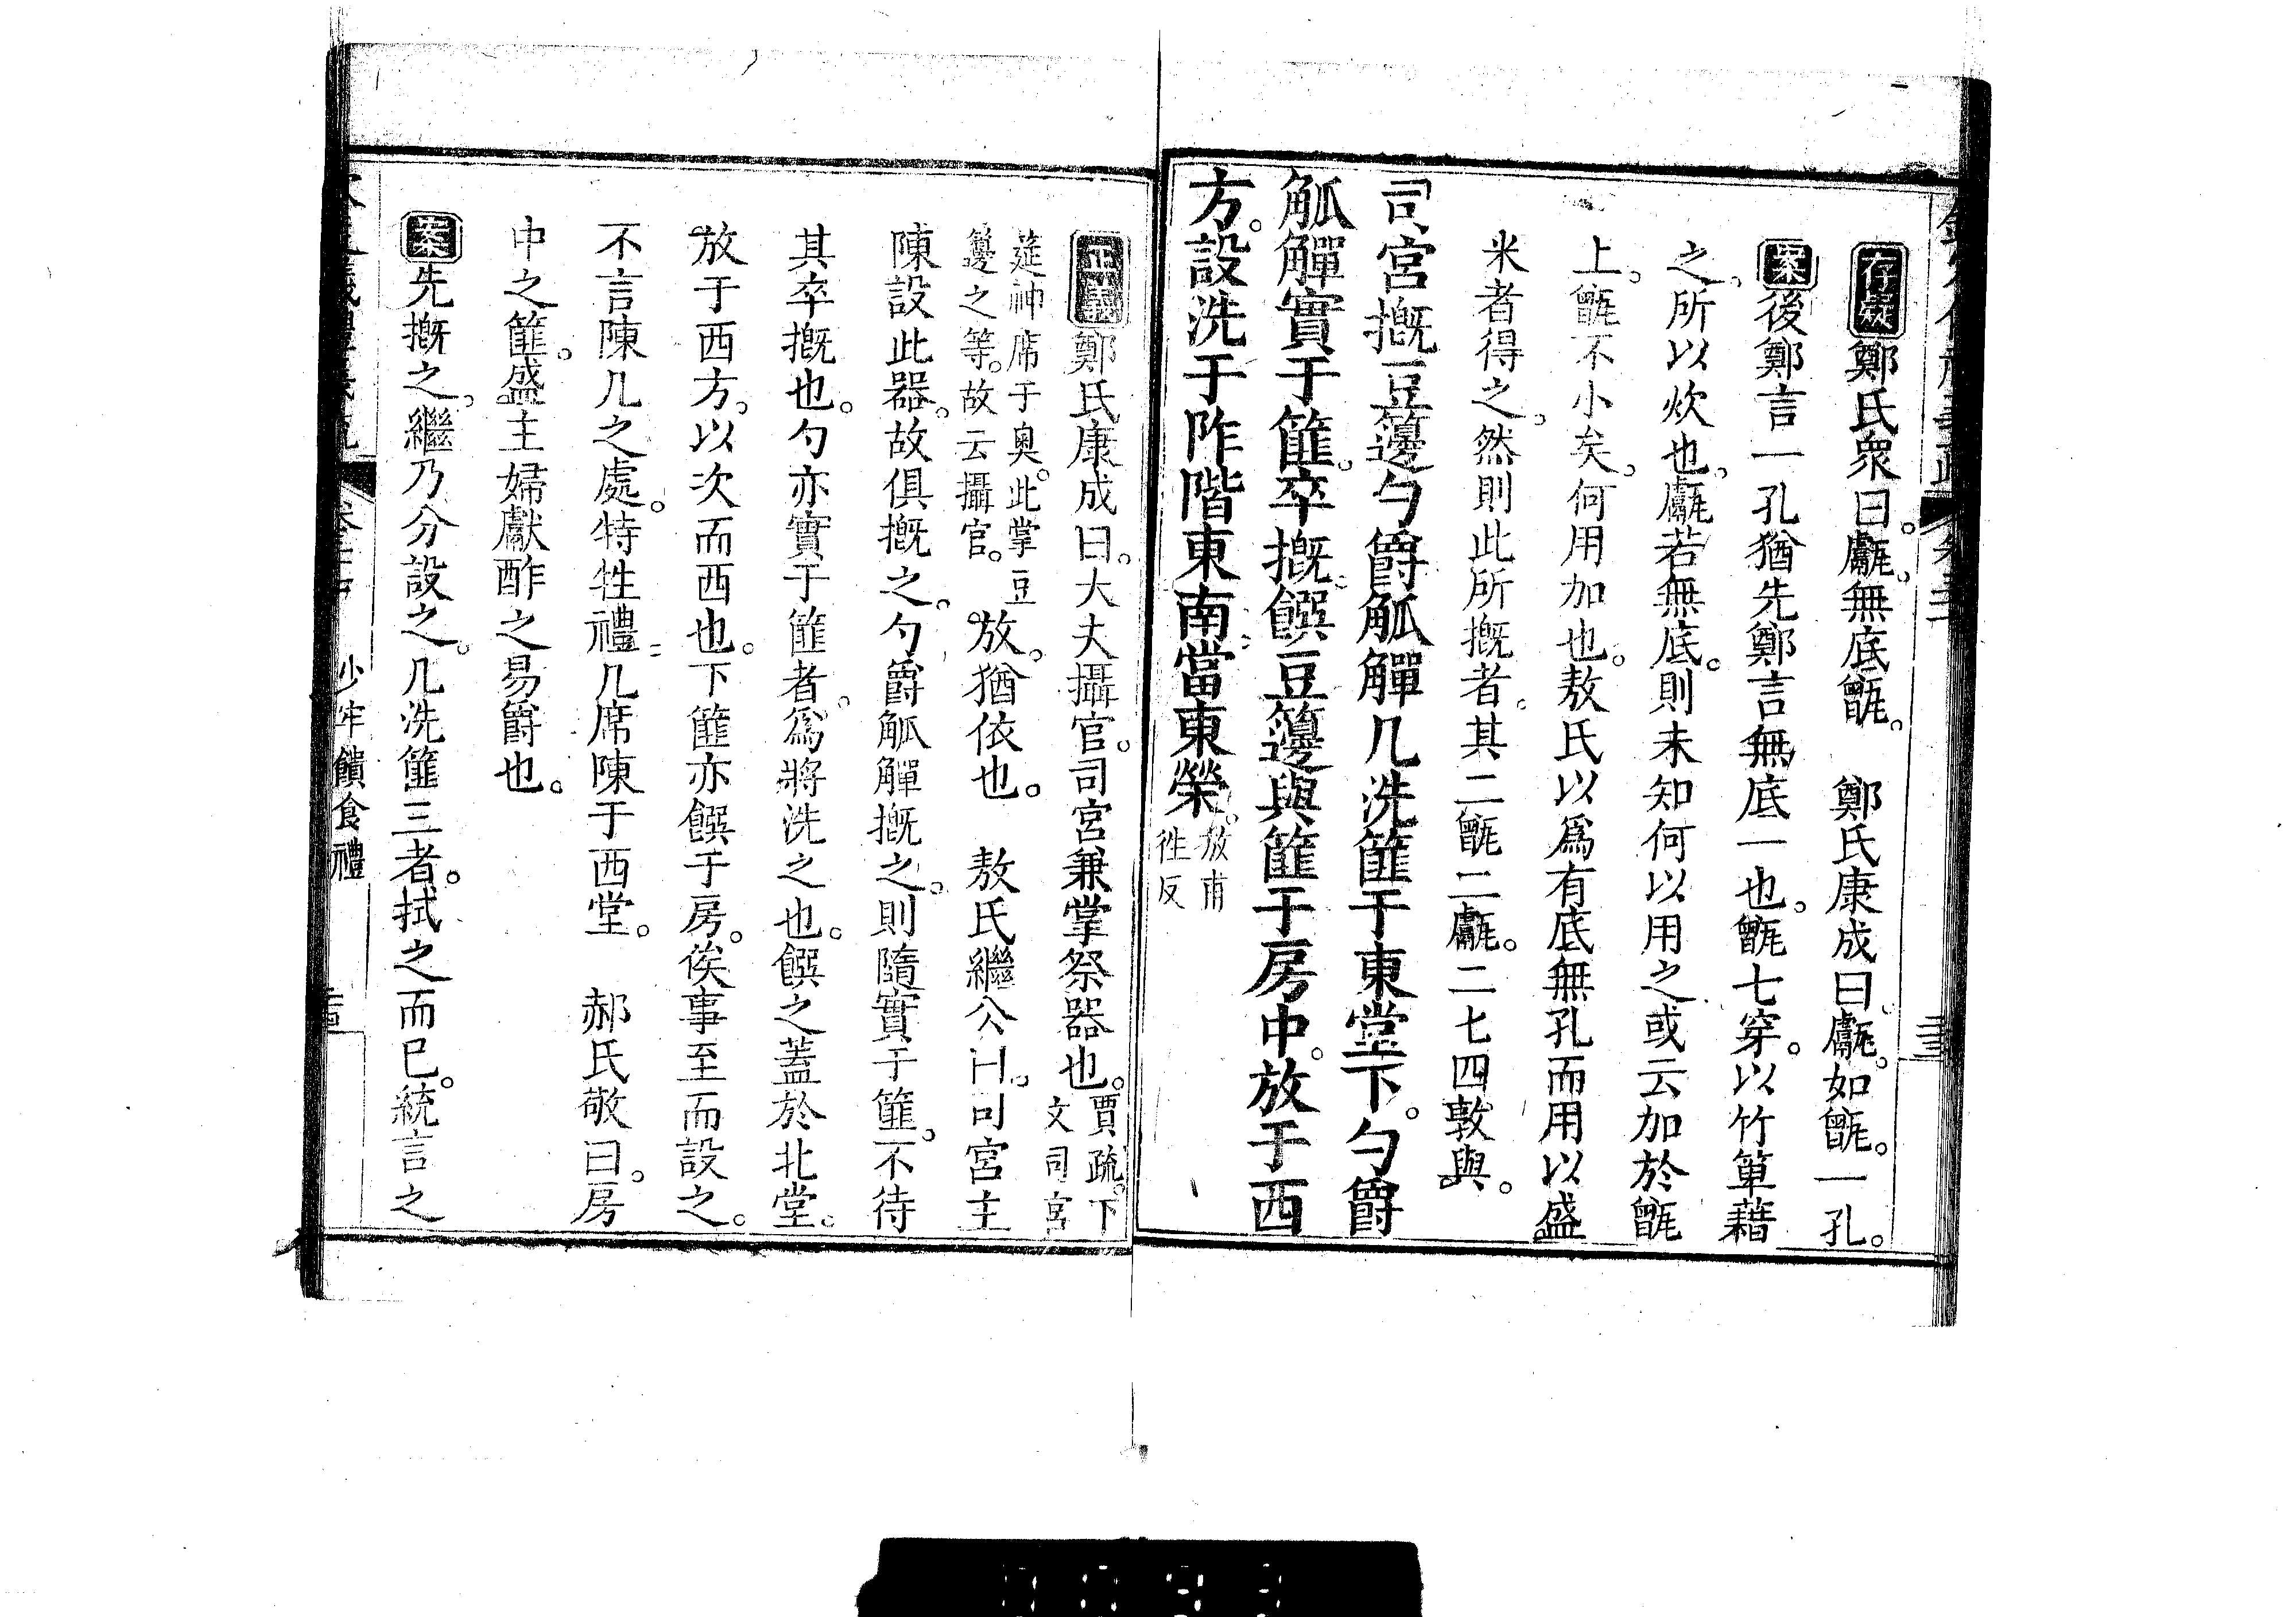 存疑鄭氏衆曰。甗。無底甑。　鄭氏康成曰。甗。如甑。一孔。
案後鄭言一孔猶先鄭言無底一也。甑七穿。以竹箄藉
之。所以炊也。甗若無底。則未知何以用之或云加於甑
上。甑不小矣。何用加也。敖氏以爲有底無孔而用以盛
米者得之。然則此所摡者。其二甑二甗。二七四敦與。
司宮摡豆籩勺爵觚觶几洗篚于東堂下。勺爵
觚觶實于篚。卒摡饌豆籩與篚于房中。放于西
方。設洗于阼階東南。當東榮。放甫
徃反
正義鄭氏康成曰。大夫攝官。司宮兼掌祭器也。賈疏。下
文司宮
筵神席于奧。此掌豆
籩之等。故云攝官。放。猶依也。　敖氏繼公曰。司宮主
陳設此器。故俱摡之。勺爵觚觶摡之。則隨實于篚。不待
其卒摡也。勺亦實于篚者。爲將洗之也。饌之蓋於北堂。
放于西方。以次而西也。下篚亦饌于房。俟事至而設之。
不言陳几之處。特牲禮。几席陳于西堂。　郝氏敬曰。房
中之篚。盛主婦獻酢之易爵也。
案先摡之。繼乃分設之。几洗篚三者。拭之而已。統言之
少牢饋食禮